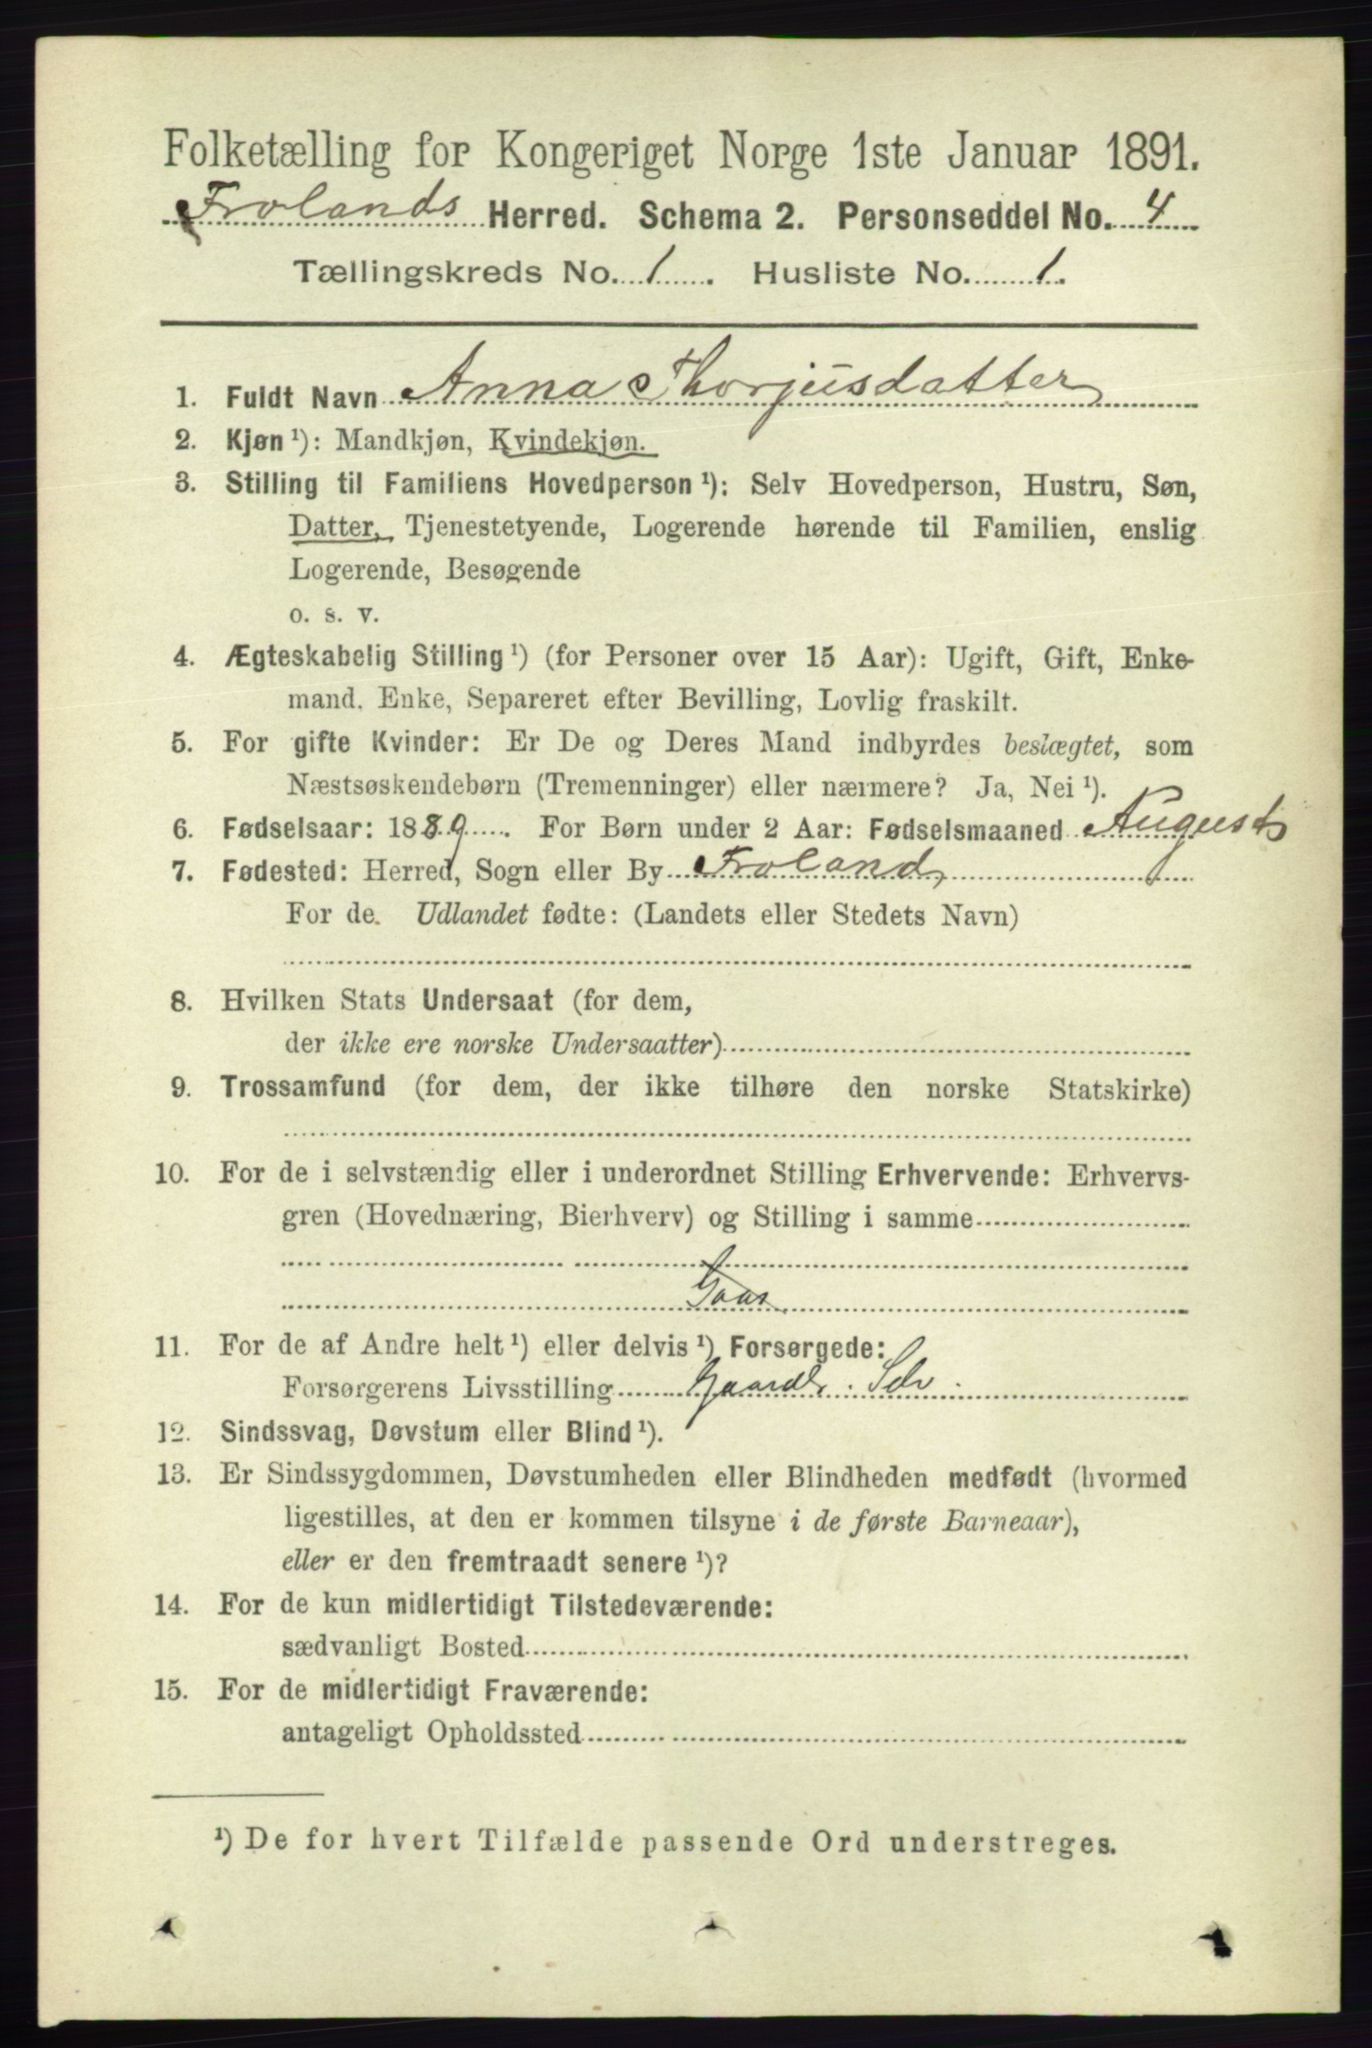 Folketælling for Kongeriget Norge 1ste Januar 1891.
Frolands Herred. Schema 2. Personseddel No. 4
Tællingskreds No. 1. Husliste No. 1.
1. Fuldt Navn Anna Thorjusdatter
2. Kjøn ¹): Mandkjøn, Kvindekjøn.
3. Stilling til Familiens Hovedperson ¹): Selv Hovedperson, Hustru, Søn,
Datter, Tjenestetyende, Logerende hørende til Familien, enslig
Logerende, Besøgende
o. s. v.
4. Ægteskabelig Stilling ¹) (for Personer over 15 Aar): Ugift, Gift, Enke-
mand, Enke, Separeret efter Bevilling, Lovlig fraskilt.
5. For gifte Kvinder: Er De og Deres Mand indbyrdes beslægtet, som
Næstsøskendebørn (Tremenninger) eller nærmere? Ja, Nei ¹).
6. Fødselsaar: 1889. For Børn under 2 Aar: Fødselsmaaned August
7. Fødested: Herred, Sogn eller By Froland
For de Udlandet fødte: (Landets eller Stedets Navn)
8. Hvilken Stats Undersaat (for dem,
der ikke ere norske Undersaatter)
9. Trossamfund (for dem, der ikke tilhøre den norske Statskirke)
10. For de i selvstændig eller i underordnet Stilling Erhvervende: Erhvervs-
gren (Hovednæring, Bierhverv) og Stilling i samme
11. For de af Andre helt ¹) eller delvis ¹) Forsørgede:
Forsørgerens Livsstilling Gaardb. Selv.
12. Sindssvag, Døvstum eller Blind ¹).
13. Er Sindssygdommen, Døvstumheden eller Blindheden medfødt (hvormed
ligestilles, at den er kommen tilsyne i de første Barneaar),
eller er den fremtraadt senere ¹)?
14. For de kun midlertidigt Tilstedeværende:
sædvanligt Bosted
15. For de midlertidigt Fraværende:
antageligt Opholdssted
¹) De for hvert Tilfælde passende Ord understreges.